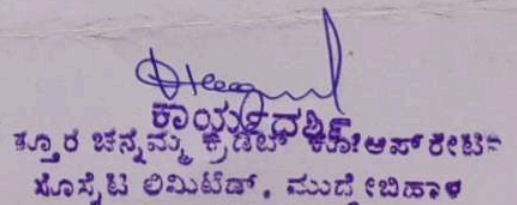 ಕಾರ್ಯದರ್ಶಿ
ತ್ತೂರ ಚನ್ನಮ್ಮ ಕ್ರೆಡಿಟ್ ಕೋಆಪ್‌ರೇಟಿ
ಸೊಸೈಟಿ ಲಿಮಿಟೆಡ್, ಮುದ್ದೇಬಿಹಾಳ